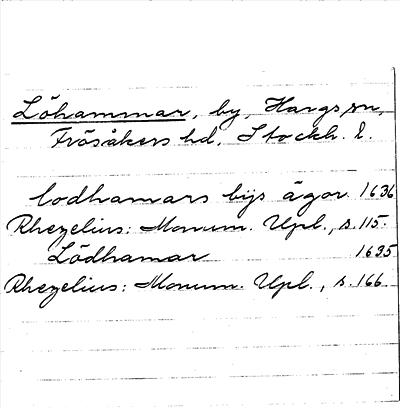 Löhammar, by, Hargs sn,
Frösåkers hd, Stockh. l.
lodhamars bijs ägor 1636
Rhezelius: Monum. Upl., s. 115.
Lödhamar 1635
Rhezelius: Monum. Upl., s. 166.